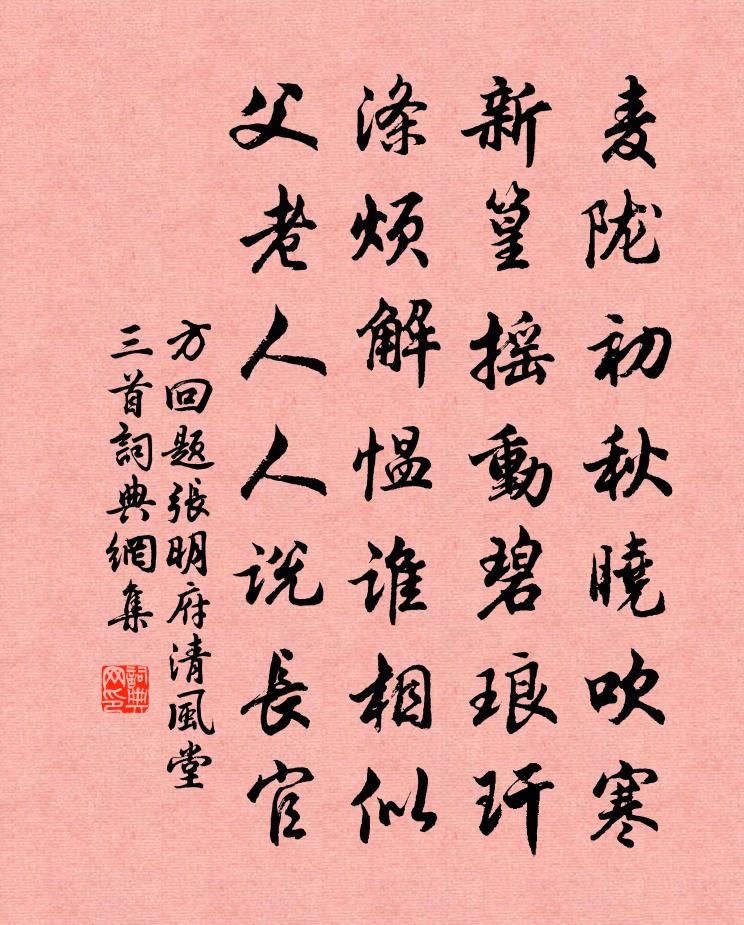 麦陇初秋曉吹寒
新篁摇動碧琅玕
涤烦解愠谁相似
父老人人说長官
方回题張明府清風堂
三首詞典網集
詞典网印